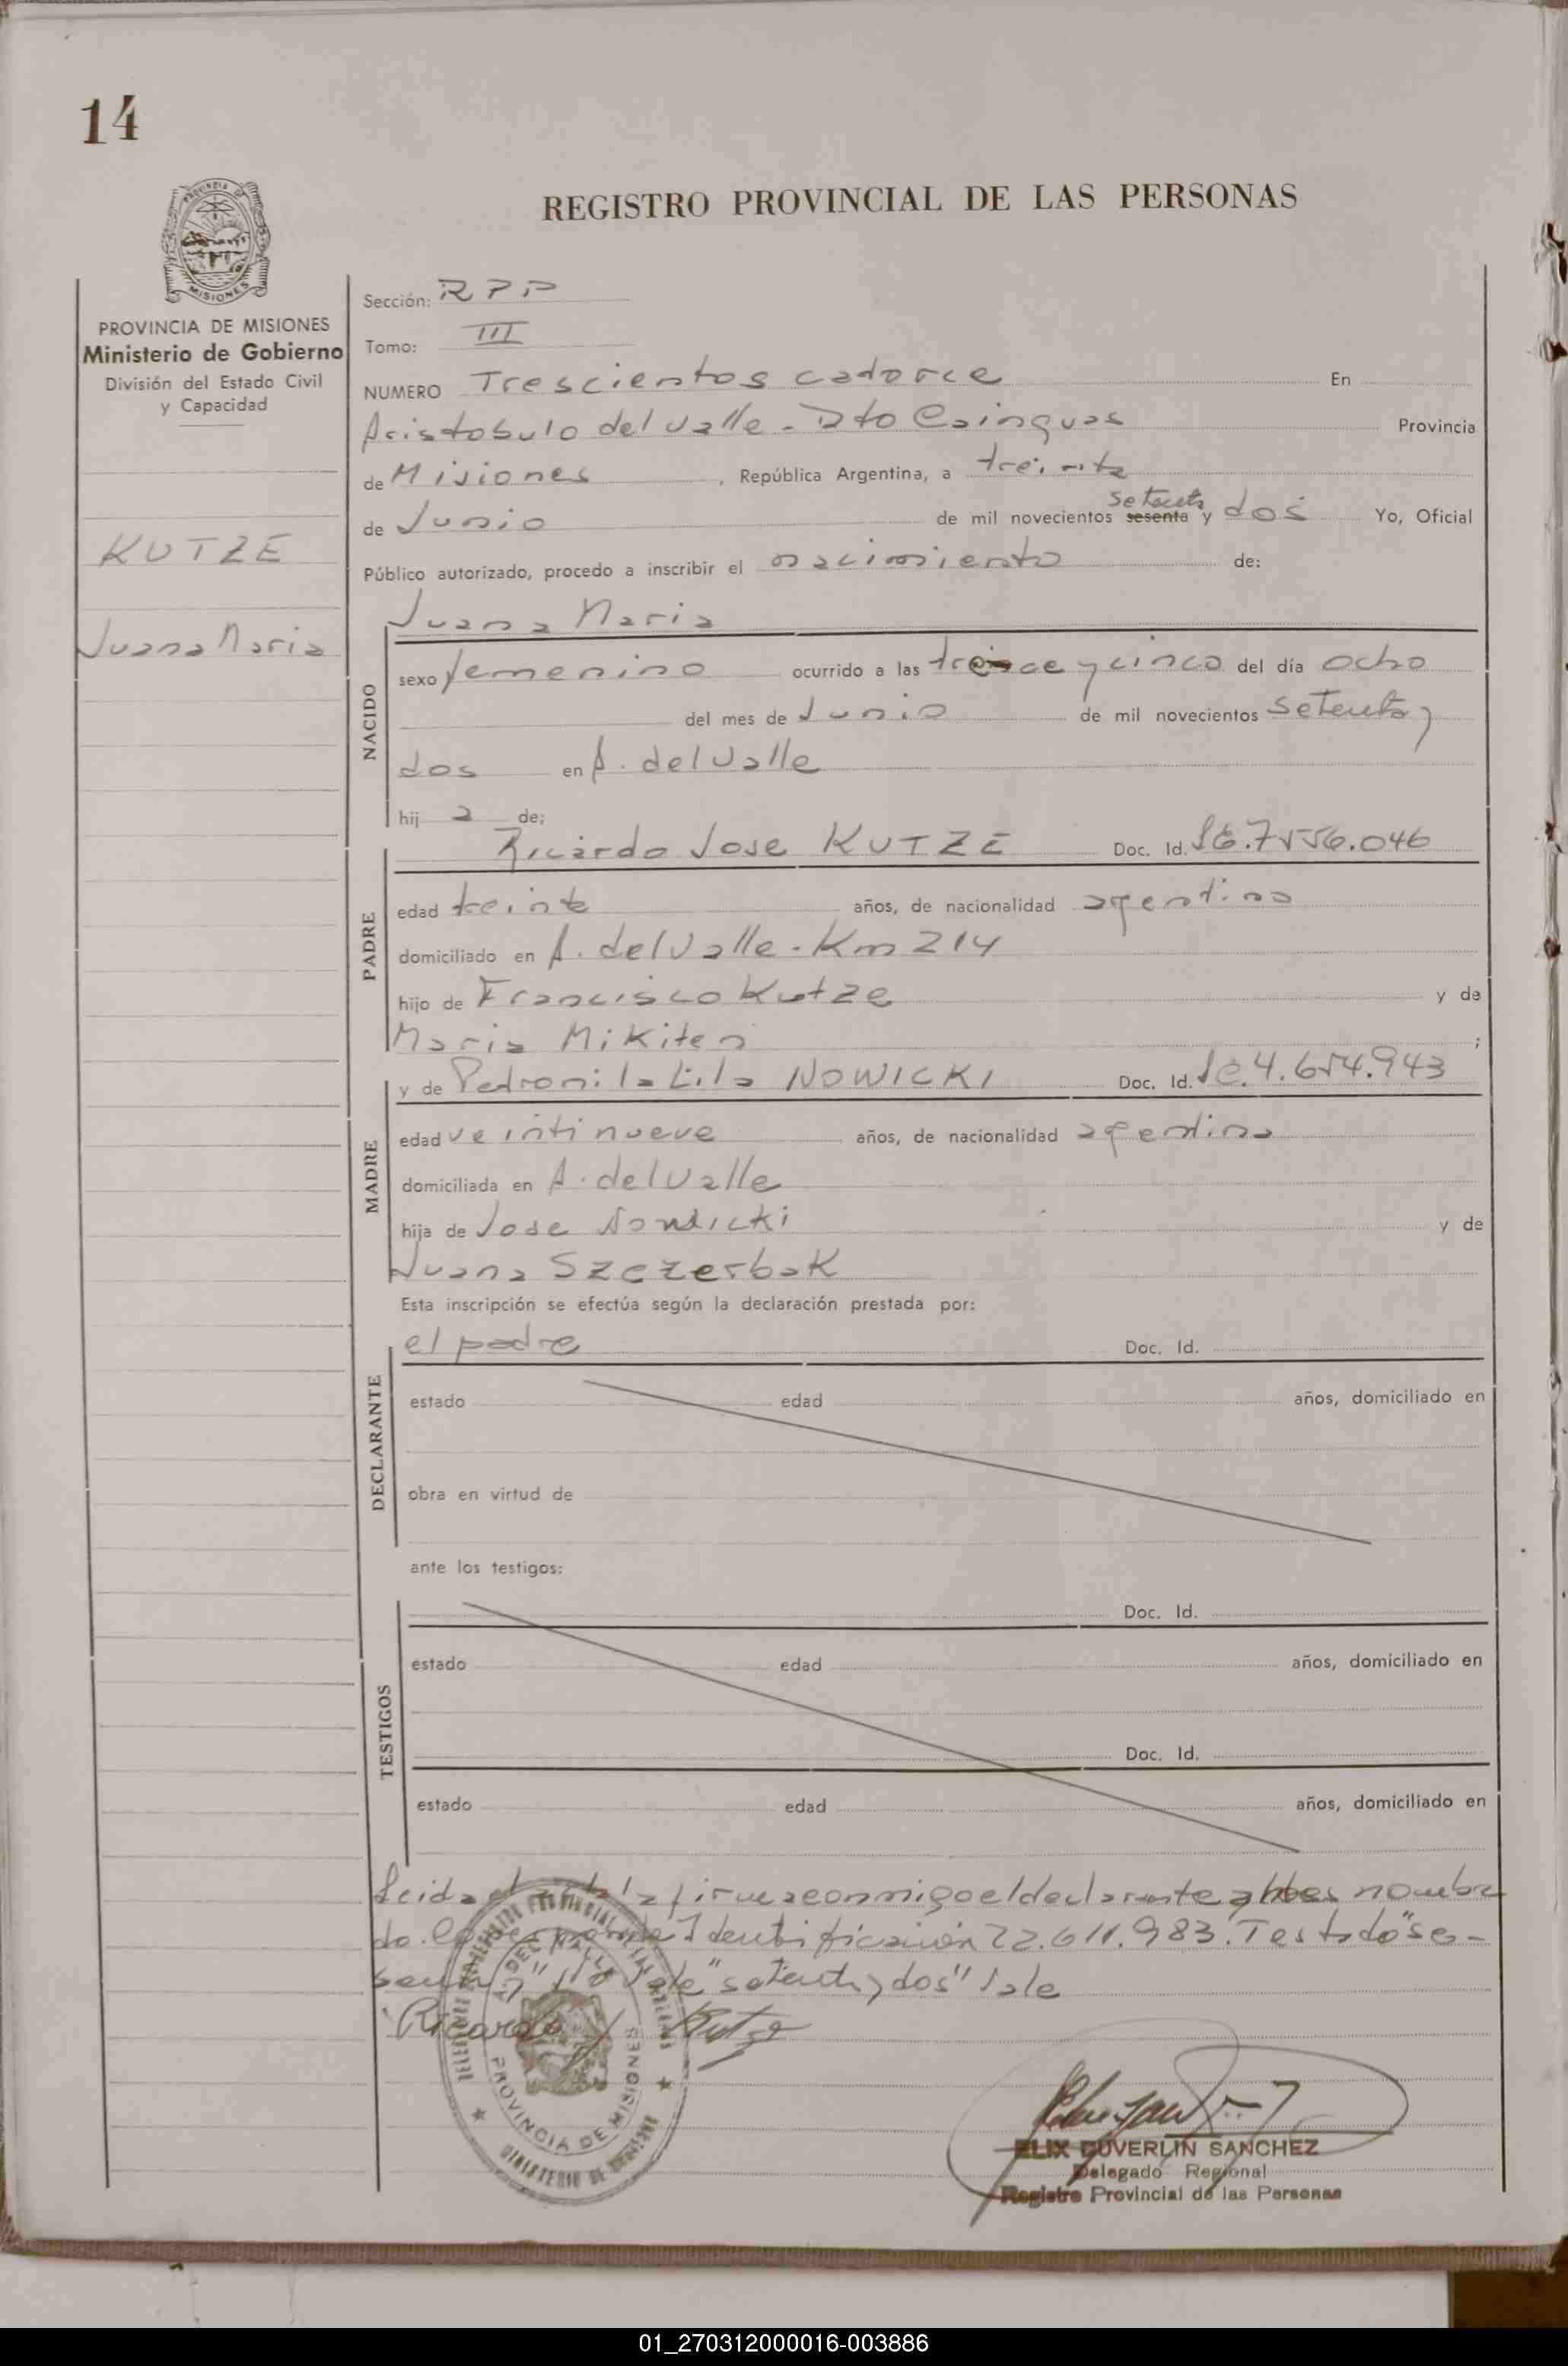 14
REGISTRO PROVINCIAL DE LAS PERSONAS
PROVINCIA DE
MISIONES
PROVINCIA DE MISIONES
Ministerio de Gobierno
División del Estado Civil
y Capacidad
KUTZE
Juana Maria
Sección: RPP
Tomo: III
NUMERO Trescientos catorce En
Aristobulo del Valle - Dto Cainguas Provincia
de Misiones, República Argentina, a treinta
de Junio de mil novecientos sesenta setenta y dos Yo, Oficial
Público autorizado, procedo a inscribir el nacimiento de:
Juana Maria
NACIDO
sexo femenino ocurrido a las y cinco del día ocho
del mes de Junio de mil novecientos setenta y
dos en A. del Valle
hij a de:
PADRE
Ricardo Jose KUTZE Doc. Id.
edad treinta años, de nacionalidad agentino
domiciliado en A. del Valle - Km 214
hijo de Francisco Kutze y de
Maria Mikiten ;
MADRE
y de Petronila Lila NOWICKI Doc. Id. 4.654.943
edad veintinueve años, de nacionalidad agentina
domiciliada en A. del Valle
hija de Jose Nowicki y de
Juana Szczerbak
Esta inscripción se efectúa según la declaración prestada por:
DECLARANTE
el padre Doc. Id.
estado edad años, domiciliado en
obra en virtud de
ante los testigos:
TESTIGOS
Doc. Id.
estado edad años, domiciliado en
Doc. Id.
estado edad años, domiciliado en
Leida el acta la firma conmigo el declarante nombra
do. Identificación 22.611.983. Testado "se-
senta y" Vale "setenta y dos" Vale
Ricardo J Kutze
A. DEL VALLE
PROVINCIA DE MISIONES
MINISTERIO DE GOBIERNO
ELIX DUVERLIN SANCHEZ
Delegado Regional
Registro Provincial de las Personas
01_270312000016-003886